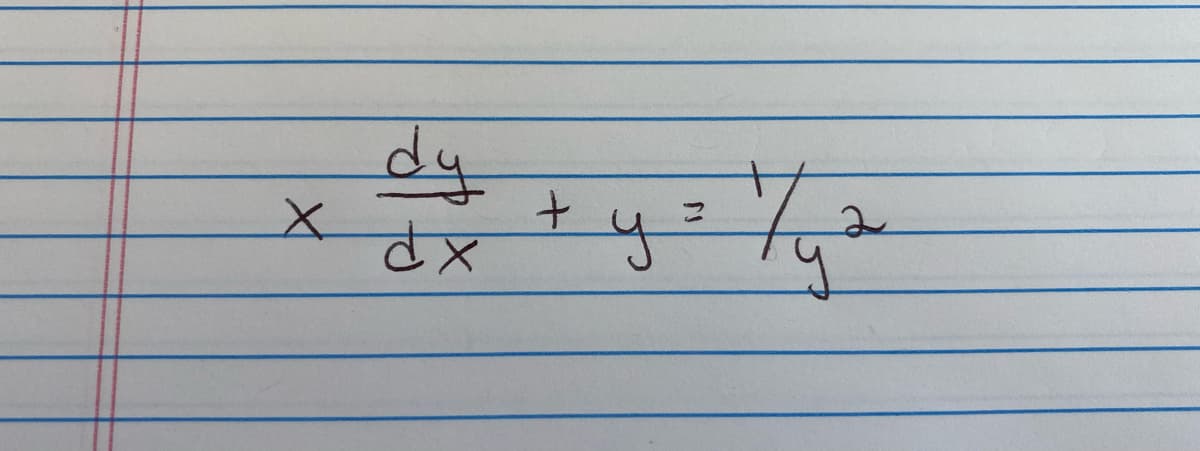 x dy/dx + y = 1/y²